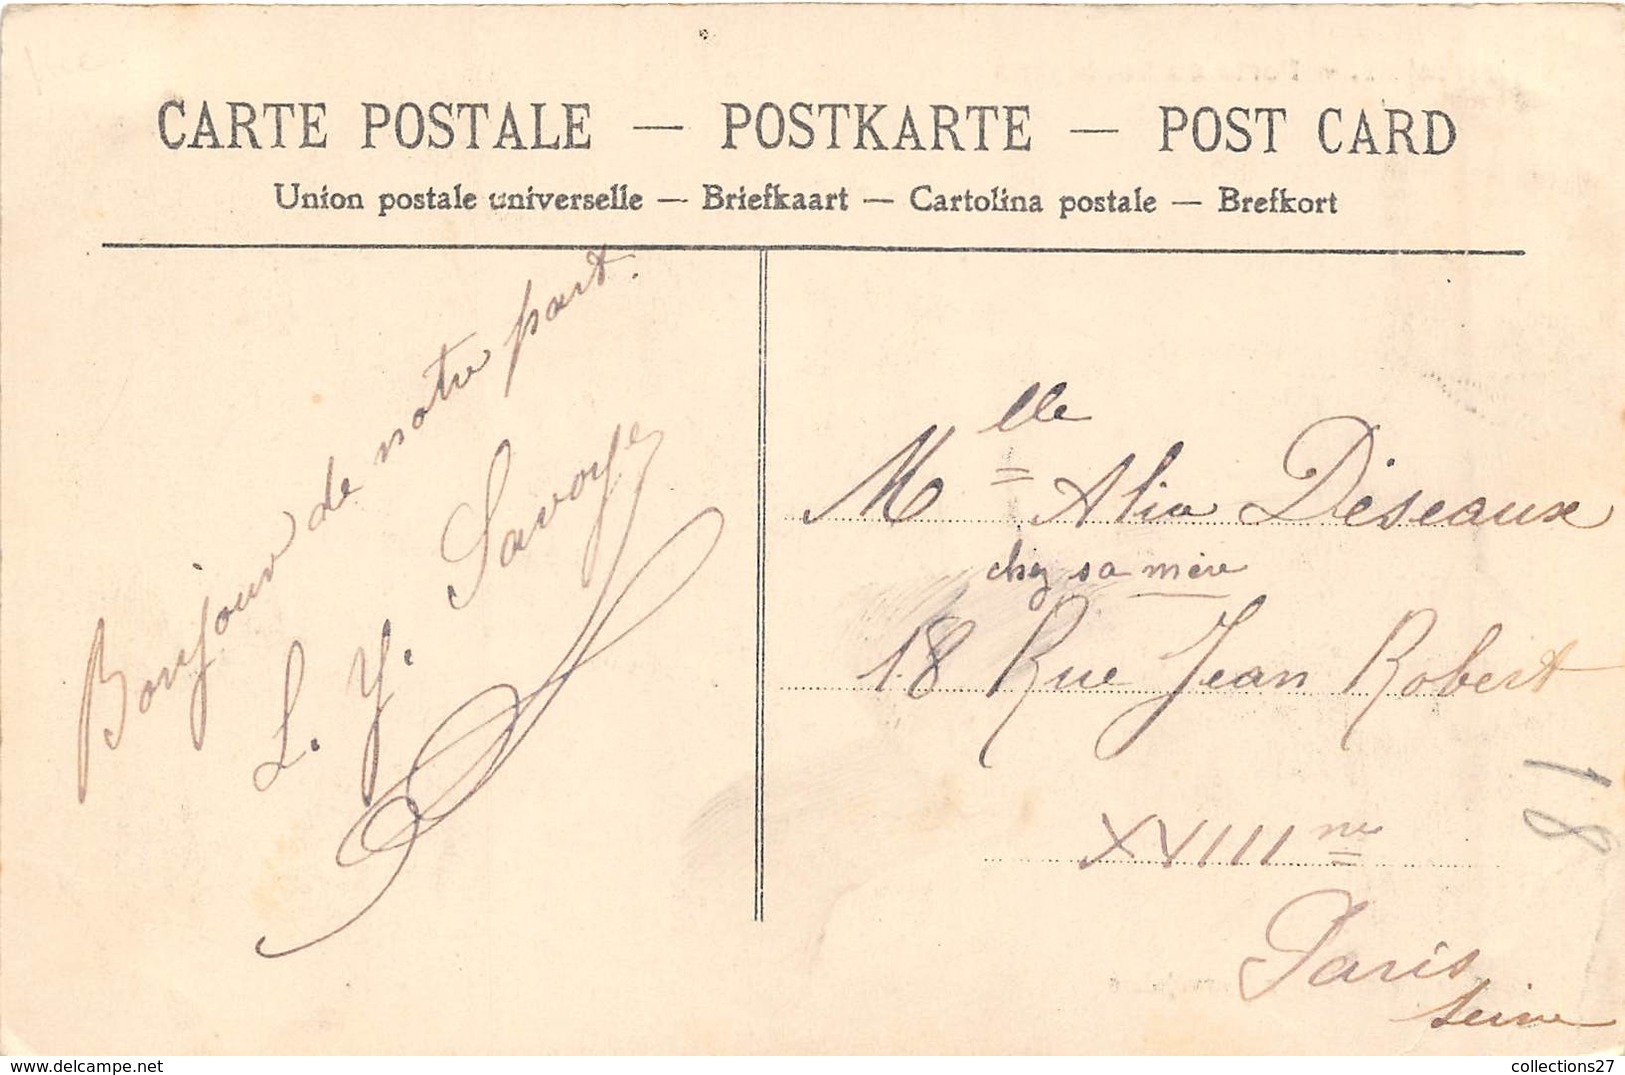 CARTE POSTALE — POSTKARTE — POST CARD
Union postale universelle — Briefkaart — Cartolina postale — Brefkort
Bonjour de notre part.
L. Y. Savoye
Mlle Alia Déseaux
chez sa mère
18 Rue Jean Robert
XVIIIme
Paris
Seine
18
collections27